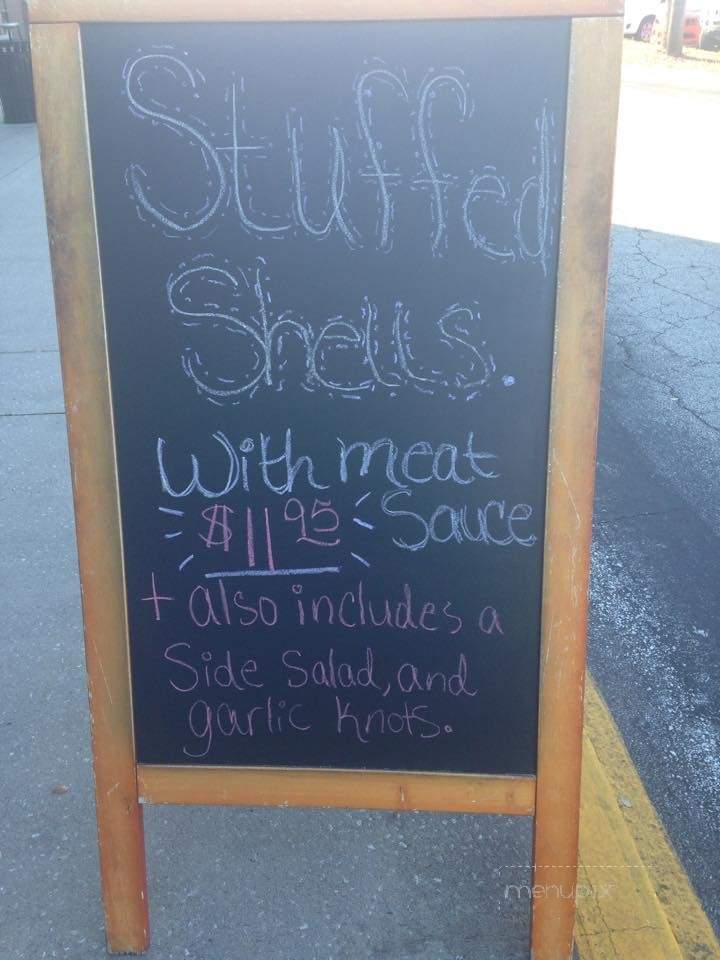 Stuffed
Shells.
With meat
$11 95 Sauce
+ also includes a
Side Salad, and
garlic Knots.
menupix